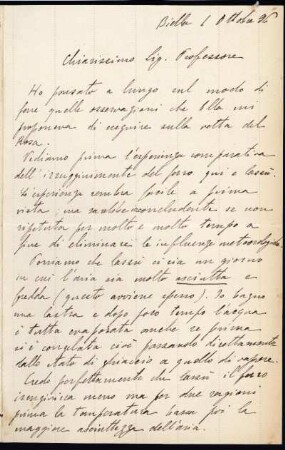 Biella 1 Ottobre 96
Chiarissimo Sig. Professore
Ho pensato a lungo sul modo di
fare quelle osservazioni che Ella mi
proponeva di eseguire sulla vetta del
Rosa.
Vediamo prima l'esperienza comparativa
dell'irrugginimento del ferro qui e lassù.
L'esperienza sembra facile a prima
vista, ma sarebbe inconcludente se non
ripetuta per molto e molto tempo a
fine di eliminare le influenze meteorologiche.
Poniamo che lassù ci sia un giorno
in cui l'aria sia molto asciutta e
fredda (questo avviene spesso). Io bagno
una lastra e dopo poco tempo l'acqua
è tutta evaporata anche se prima
si è congelata cioè passando direttamente
dallo stato di ghiaccio a quello di vapore.
Credo perfettamente che lassù il ferro
irrugginisca meno ma per due ragioni
prima la temperatura bassa poi la
maggiore asciuttezza dell'aria.